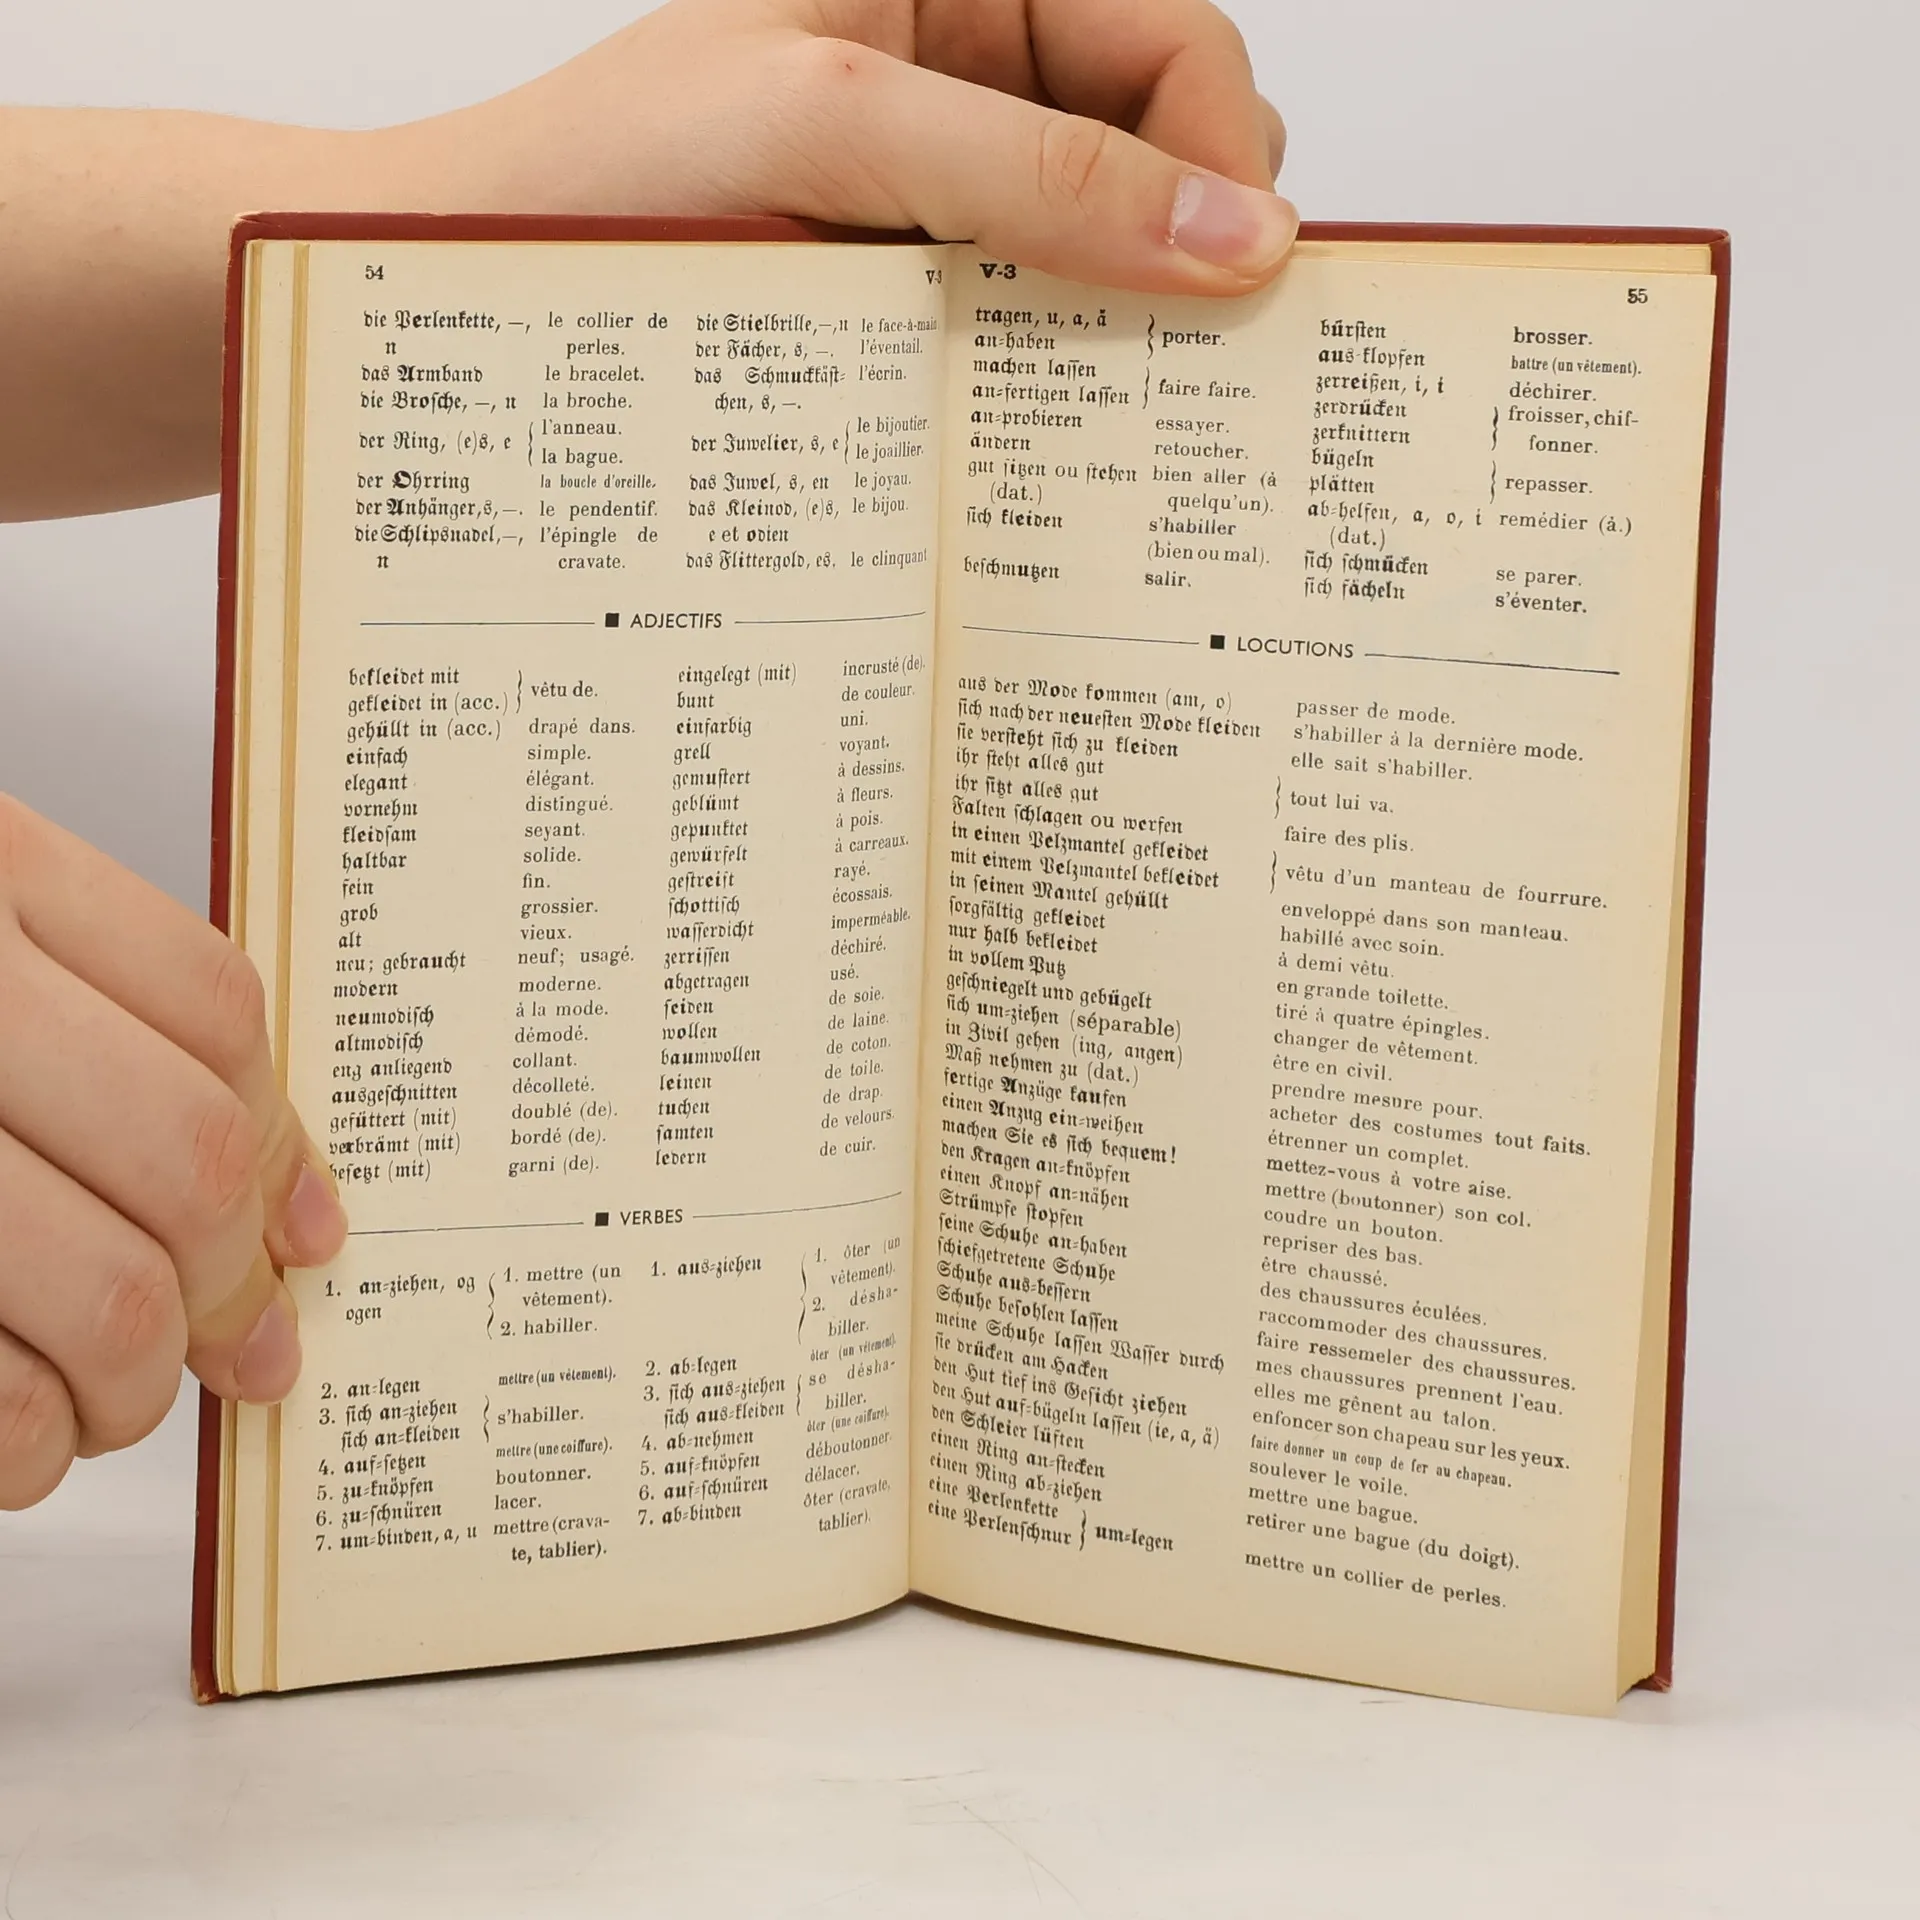 54
V-3
die Perlenkette, —, le collier de
n perles.
das Armband le bracelet.
die Brosche, —, n la broche.
der Ring, (e)s, e { l'anneau.
la bague.
der Ohrring la boucle d'oreille.
der Anhänger, s, —. le pendentif.
die Schlipsnadel, —, l'épingle de
n cravate.
die Stielbrille, —, n le face-à-main
der Fächer, s, —. l'éventail.
das Schmuckkäst= l'écrin.
chen, s, —.
der Juwelier, s, e { le bijoutier.
le joaillier.
das Juwel, s, en le joyau.
das Kleinod, (e)s, le bijou.
e et odien
das Flittergold, es. le clinquant
■ ADJECTIFS
bekleidet mit
gekleidet in (acc.) } vêtu de.
gehüllt in (acc.) drapé dans.
einfach simple.
elegant élégant.
vornehm distingué.
kleidsam seyant.
haltbar solide.
fein fin.
grob grossier.
alt vieux.
neu; gebraucht neuf; usagé.
modern moderne.
neumodisch à la mode.
altmodisch démodé.
eng anliegend collant.
ausgeschnitten décolleté.
gefüttert (mit) doublé (de).
verbrämt (mit) bordé (de).
besetzt (mit) garni (de).
eingelegt (mit) incrusté (de).
bunt de couleur.
einfarbig uni.
grell voyant.
gemustert à dessins.
geblümt à fleurs.
gepunktet à pois.
gewürfelt à carreaux.
gestreift rayé.
schottisch écossais.
wasserdicht imperméable.
zerrissen déchiré.
abgetragen usé.
seiden de soie.
wollen de laine.
baumwollen de coton.
leinen de toile.
tuchen de drap.
samten de velours.
ledern de cuir.
■ VERBES
1. an=ziehen, og { 1. mettre (un
ogen vêtement).
2. habiller.
2. an=legen mettre (un vêtement).
3. sich an=ziehen
sich an=kleiden } s'habiller.
4. auf=setzen mettre (une coiffure).
5. zu=knöpfen boutonner.
6. zu=schnüren lacer.
7. um=binden, a, u mettre (crava-
te, tablier).
1. aus=ziehen { 1. ôter (un
vêtement).
2. désha-
biller.
2. ab=legen ôter (un vêtement).
3. sich aus=ziehen { se désha-
sich aus=kleiden biller.
4. ab=nehmen ôter (une coiffure).
5. auf=knöpfen déboutonner.
6. auf=schnüren délacer.
7. ab=binden ôter (cravate,
tablier).
V-3
55
tragen, u, a, ä
an=haben } porter.
machen lassen
an=fertigen lassen } faire faire.
an=probieren essayer.
ändern retoucher.
gut sitzen ou stehen bien aller (à
(dat.) quelqu'un).
sich kleiden s'habiller
(bien ou mal).
beschmutzen salir.
bürsten brosser.
aus=klopfen battre (un vêtement).
zerreißen, i, i déchirer.
zerdrücken } froisser, chif-
zerknittern fonner.
bügeln
plätten } repasser.
ab=helfen, a, o, i remédier (à.)
(dat.)
sich schmücken se parer.
sich fächeln s'éventer.
■ LOCUTIONS
aus der Mode kommen (am, o) passer de mode.
sich nach der neuesten Mode kleiden s'habiller à la dernière mode.
sie versteht sich zu kleiden elle sait s'habiller.
ihr steht alles gut
ihr sitzt alles gut } tout lui va.
Falten schlagen ou werfen faire des plis.
in einen Pelzmantel gekleidet
mit einem Pelzmantel bekleidet } vêtu d'un manteau de fourrure.
in seinen Mantel gehüllt enveloppé dans son manteau.
sorgfältig gekleidet habillé avec soin.
nur halb bekleidet à demi vêtu.
in vollem Putz en grande toilette.
geschniegelt und gebügelt tiré à quatre épingles.
sich um=ziehen (séparable) changer de vêtement.
in Zivil gehen (ing, angen) être en civil.
Maß nehmen zu (dat.) prendre mesure pour.
fertige Anzüge kaufen acheter des costumes tout faits.
einen Anzug ein=weihen étrenner un complet.
machen Sie es sich bequem! mettez-vous à votre aise.
den Kragen an=knöpfen mettre (boutonner) son col.
einen Knopf an=nähen coudre un bouton.
Strümpfe stopfen repriser des bas.
seine Schuhe an=haben être chaussé.
schiefgetretene Schuhe des chaussures éculées.
Schuhe aus=bessern raccommoder des chaussures.
Schuhe besohlen lassen faire ressemeler des chaussures.
meine Schuhe lassen Wasser durch mes chaussures prennent l'eau.
sie drücken am Hacken elles me gênent au talon.
den Hut tief ins Gesicht ziehen enfoncer son chapeau sur les yeux.
den Hut auf=bügeln lassen (ie, a, ä) faire donner un coup de fer au chapeau.
den Schleier lüften soulever le voile.
einen Ring an=stecken mettre une bague.
einen Ring ab=ziehen retirer une bague (du doigt).
eine Perlenkette
eine Perlenschnur } um=legen mettre un collier de perles.